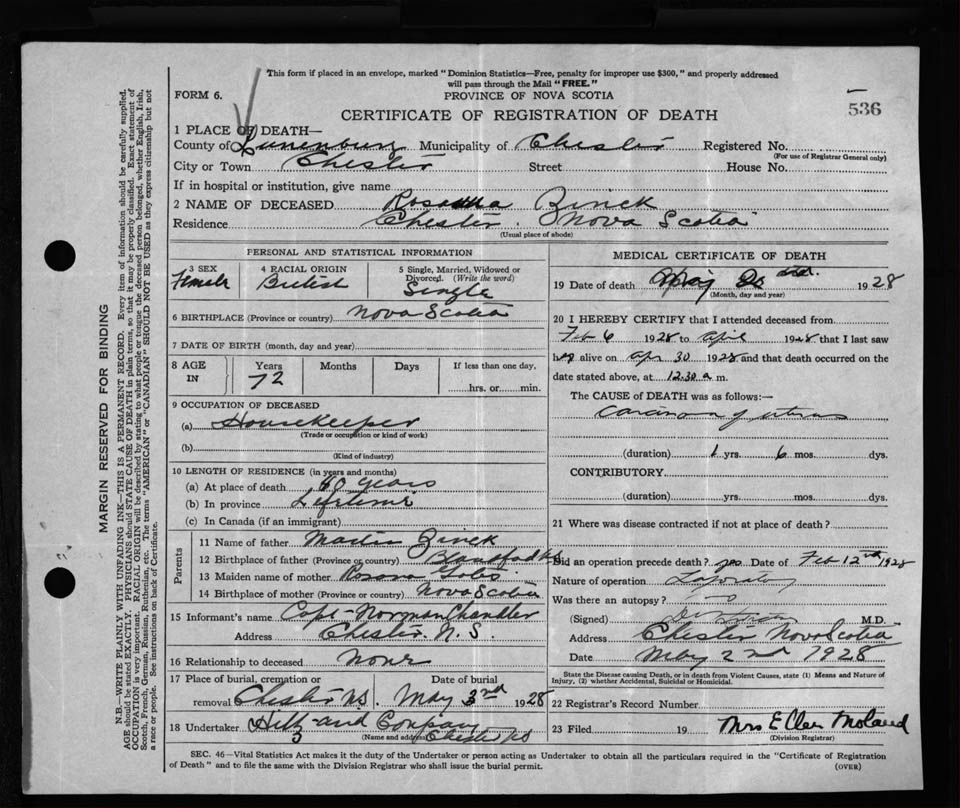 This form if placed in an envelope, marked "Dominion Statistics—Free, penalty for improper use $300," and properly addressed
will pass through the Mail "FREE."
FORM 6.
PROVINCE OF NOVA SCOTIA
536
CERTIFICATE OF REGISTRATION OF DEATH
1 PLACE OF DEATH—
County of Lunenburg Municipality of Chester Registered No.
(For use of Registrar General only)
City or Town Chester Street House No.
If in hospital or institution, give name
2 NAME OF DECEASED Zinck
Residence Chester Nova Scotia
(Usual place of abode)
PERSONAL AND STATISTICAL INFORMATION
3 SEX Female
4 RACIAL ORIGIN British
5 Single, Married, Widowed or Divorced. (Write the word) Single
6 BIRTHPLACE (Province or country) Nova Scotia
7 DATE OF BIRTH (month, day and year)
8 AGE IN Years 72 Months Days If less than one day, hrs. or min.
9 OCCUPATION OF DECEASED
(a) Housekeeper
(Trade or occupation or kind of work)
(b)
(Kind of industry)
10 LENGTH OF RESIDENCE (in years and months)
(a) At place of death 60 years
(b) In province Lifetime
(c) In Canada (if an immigrant)
Parents
11 Name of father Martin Zinck
12 Birthplace of father (Province or country) Blandford NS
13 Maiden name of mother
14 Birthplace of mother (Province or country) Nova Scotia
15 Informant's name Capt Norman Chandler
Address Chester. N.S.
16 Relationship to deceased None
17 Place of burial, cremation or removal Chester NS. Date of burial May 3rd 1928
18 Undertaker and Company
(Name and address) Chester NS
3
MEDICAL CERTIFICATE OF DEATH
19 Date of death 1928
(Month, day and year)
20 I HEREBY CERTIFY that I attended deceased from
Feb 6 1928 to April 1928 that I last saw
her alive on Apr 30 1928 and that death occurred on the
date stated above, at 12.30 a m.
The CAUSE of DEATH was as follows:—
Carcinoma of uterus
(duration) 1 yrs. 6 mos. dys.
CONTRIBUTORY
(duration) yrs. mos. dys.
21 Where was disease contracted if not at place of death?
Did an operation precede death? yes Date of Feb 12nd 1928
Nature of operation
Was there an autopsy?
(Signed) M.D.
Address Chester Nova Scotia
Date May 2nd 1928
State the Disease causing Death, or in death from Violent Causes, state (1) Means and Nature of
Injury, (2) whether Accidental, Suicidal or Homicidal.
22 Registrar's Record Number
23 Filed 19 Mrs Ellen
(Division Registrar)
SEC. 46—Vital Statistics Act makes it the duty of the Undertaker or person acting as Undertaker to obtain all the particulars required in the "Certificate of Registration
of Death" and to file the same with the Division Registrar who shall issue the burial permit.
(OVER)
MARGIN RESERVED FOR BINDING
N.B.—WRITE PLAINLY WITH UNFADING INK—THIS IS A PERMANENT RECORD. Every item of information should be carefully supplied.
AGE should be stated EXACTLY. PHYSICIANS should STATE CAUSE OF DEATH in plain terms, so that it may be properly classified. Exact statement of
OCCUPATION is very important. RACIAL ORIGIN will be described by stating to what people or tongue the deceased person belonged, whether English, Irish,
Scotch, French, German, Russian, Ruthenian, etc. The terms "AMERICAN" or "CANADIAN" SHOULD NOT BE USED as they express citizenship but not
a race or people. See instructions on back of Certificate.